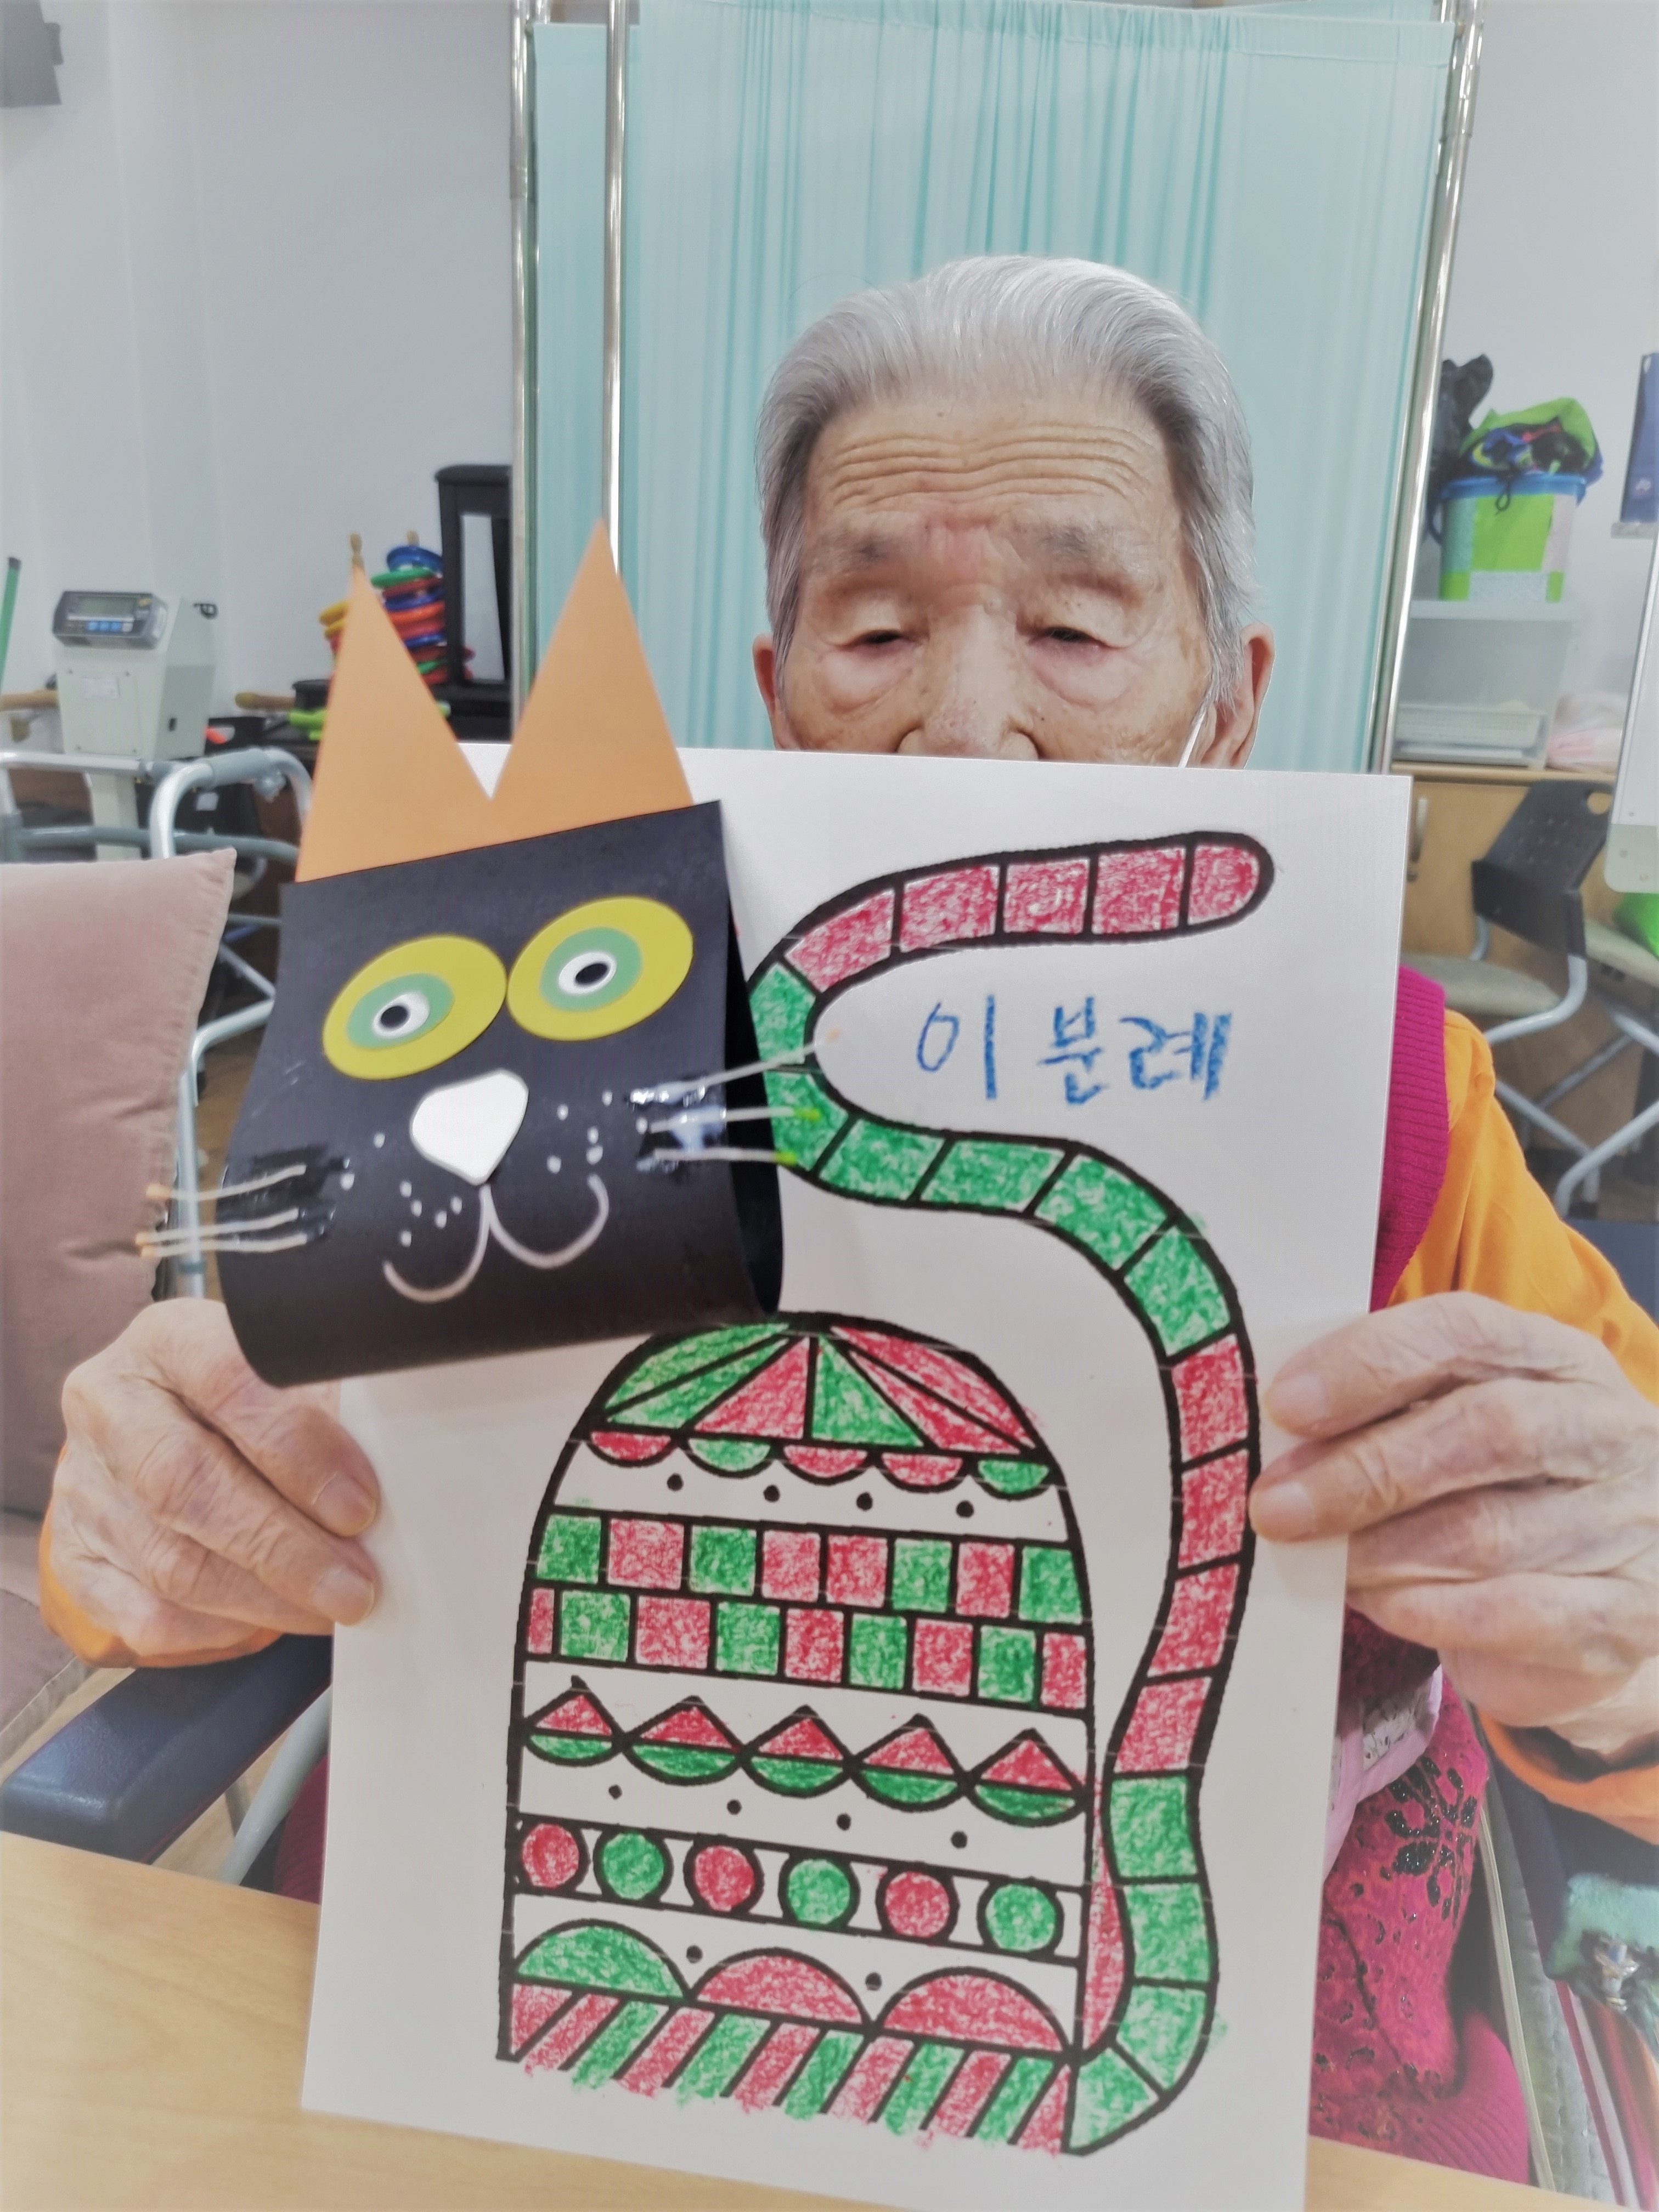 이분례